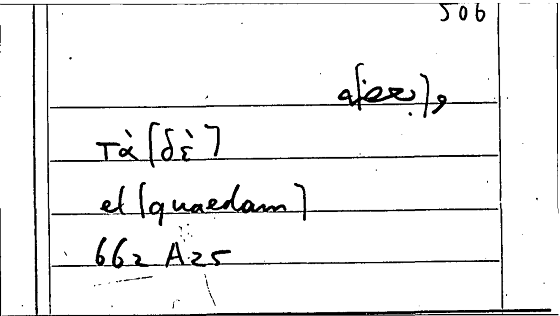 506
و[بعض]ها
τὰ [δὲ]
et [quaedam]
662 A25